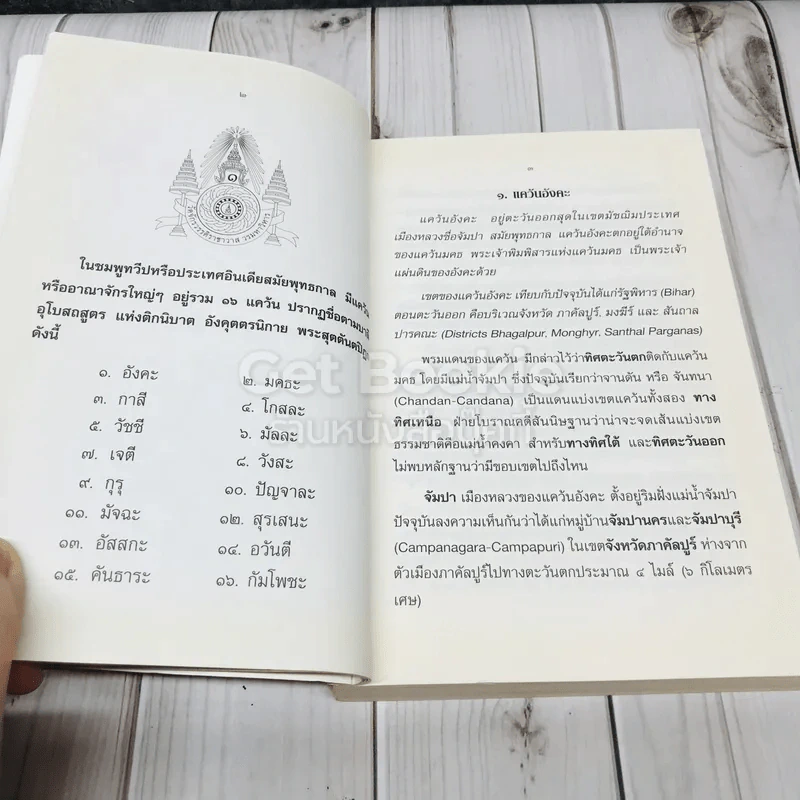 ๒
ในชมพูทวีปหรือประเทศอินเดียสมัยพุทธกาล มีแคว้น
หรืออาณาจักรใหญ่ๆ อยู่รวม ๑๖ แคว้น ปรากฏชื่อตามบาลี
อุโบสถสูตร แห่งติกนิบาต อังคุตตรนิกาย พระสุตตันตปิฎก
ดังนี้
๑. อังคะ ๒. มคธะ
๓. กาสี ๔. โกสละ
๕. วัชชี ๖. มัลละ
๗. เจตี ๘. วังสะ
๙. กุรุ ๑๐. ปัญจาละ
๑๑. มัจฉะ ๑๒. สุรเสนะ
๑๓. อัสสกะ ๑๔. อวันตี
๑๕. คันธาระ ๑๖. กัมโพชะ
๓
๑. แคว้นอังคะ
แคว้นอังคะ อยู่ตะวันออกสุดในเขตมัชฌิมประเทศ
เมืองหลวงชื่อจัมปา สมัยพุทธกาล แคว้นอังคะตกอยู่ใต้อำนาจ
ของแคว้นมคธ พระเจ้าพิมพิสารแห่งแคว้นมคธ เป็นพระเจ้า
แผ่นดินของอังคะด้วย
เขตของแคว้นอังคะ เทียบกับปัจจุบันได้แก่รัฐพิหาร (Bihar)
ตอนตะวันออก คือบริเวณจังหวัด ภาคัลปูร์, มงฆีร์ และ สันถาล
ปารคณะ (Districts Bhagalpur, Monghyr. Santhal Parganas)
พรมแดนของแคว้น มีกล่าวไว้ว่าทิศตะวันตกติดกับแคว้น
มคธ โดยมีแม่น้ำจัมปา ซึ่งปัจจุบันเรียกว่าจานดัน หรือ จันทนา
(Chandan-Candana) เป็นแดนแบ่งเขตแคว้นทั้งสอง ทาง
ทิศเหนือ ฝ่ายโบราณคดีสันนิษฐานว่าน่าจะจดเส้นแบ่งเขต
ธรรมชาติคือแม่น้ำคงคา สำหรับทางทิศใต้ และทิศตะวันออก
ไม่พบหลักฐานว่ามีขอบเขตไปถึงไหน
จัมปา เมืองหลวงของแคว้นอังคะ ตั้งอยู่ริมฝั่งแม่น้ำจัมปา
ปัจจุบันลงความเห็นกันว่าได้แก่หมู่บ้านจัมปานครและจัมปาบุรี
(Campanagara-Campapuri) ในเขตจังหวัดภาคัลปูร์ ห่างจาก
ตัวเมืองภาคัลปูร์ไปทางตะวันตกประมาณ ๔ ไมล์ (๖ กิโลเมตร
เศษ)
Get Bookie
ร้านหนังสือบุ๊คกี้